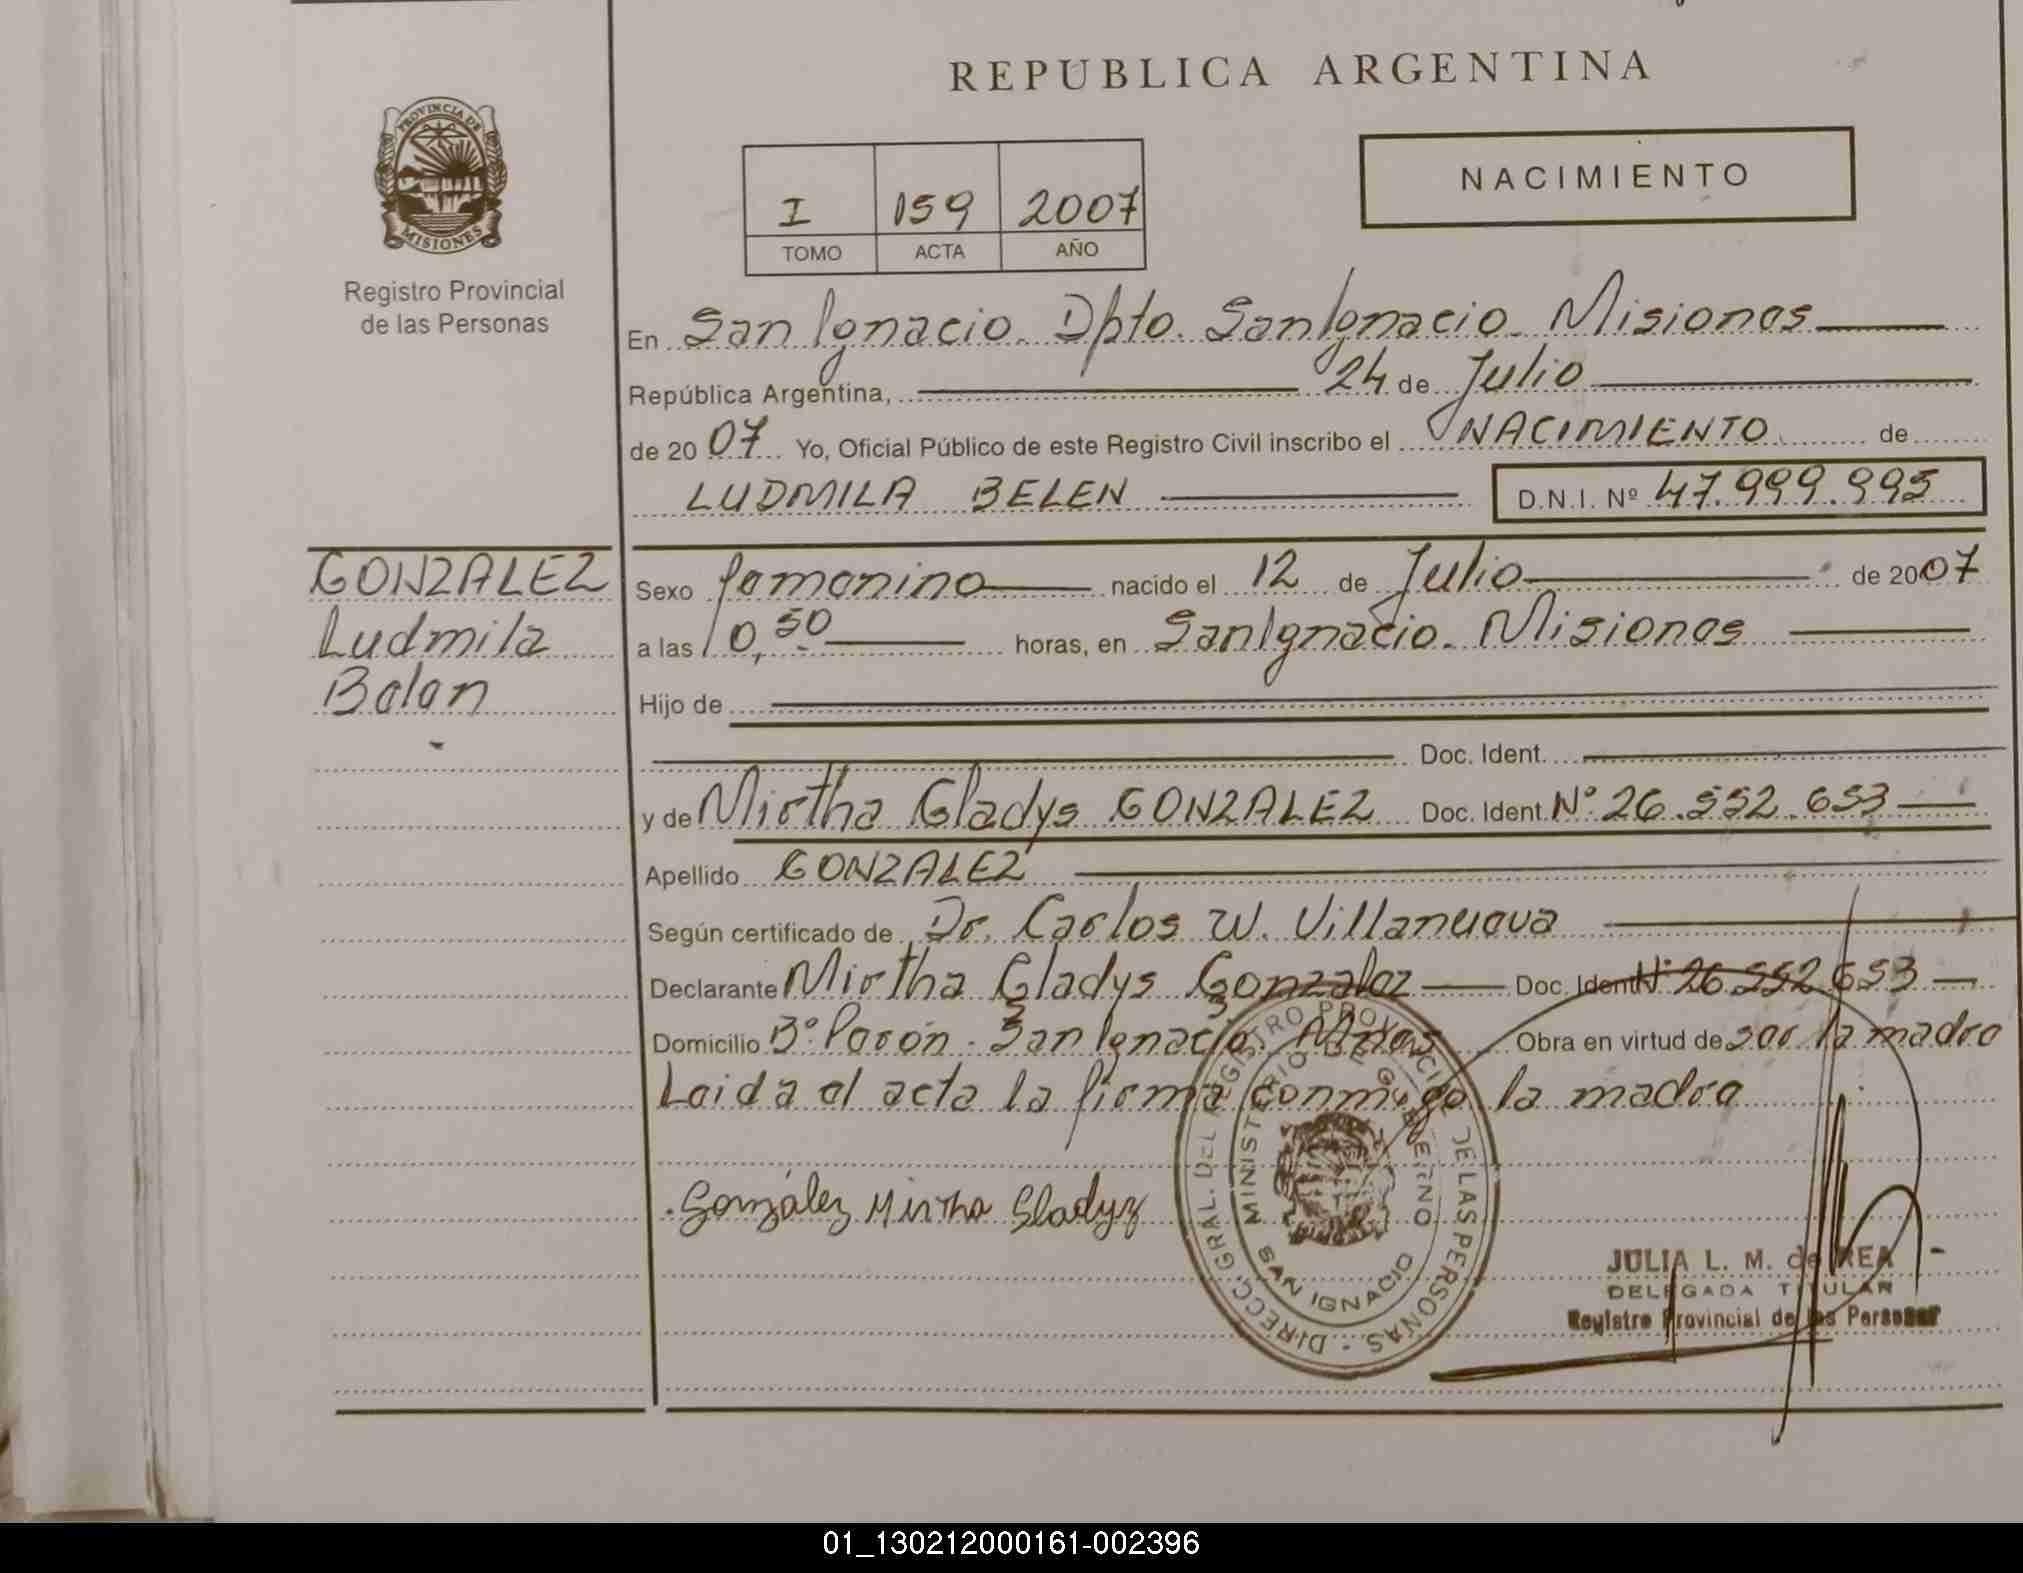 REPUBLICA ARGENTINA
PROVINCIA DE
MISIONES
Registro Provincial
de las Personas
I 159 2007
TOMO ACTA AÑO
NACIMIENTO
En San Ignacio. Dpto. San Ignacio. Misiones
República Argentina, 24 de Julio
de 2007 Yo, Oficial Público de este Registro Civil inscribo el NACIMIENTO de
LUDMILA BELEN D.N.I. Nº 47.999.995
GONZALEZ
Ludmila
Belen
Sexo femenino nacido el 12 de Julio de 2007
a las 10,50 horas, en San Ignacio. Misiones
Hijo de
Doc. Ident.
y de Mirtha Gladys GONZALEZ Doc. Ident. Nº 26.552.653
Apellido GONZALEZ
Según certificado de Dr. Carlos W. Villanueva
Declarante Mirtha Gladys Gonzalez Doc. Ident Nº 26.552.653
Domicilio Bº Perón. San Ignacio. Mnes Obra en virtud de ser la madre
Leida el acta la firma conmigo la madre
González Mirtha Gladyz
DIRECC. GRAL. DEL REGISTRO PROVINCIAL DE LAS PERSONAS
MINISTERIO DE GOBIERNO
SAN IGNACIO
JULIA L. M. de REA
DELEGADA TITULAR
Registro Provincial de las Personas
01_130212000161-002396